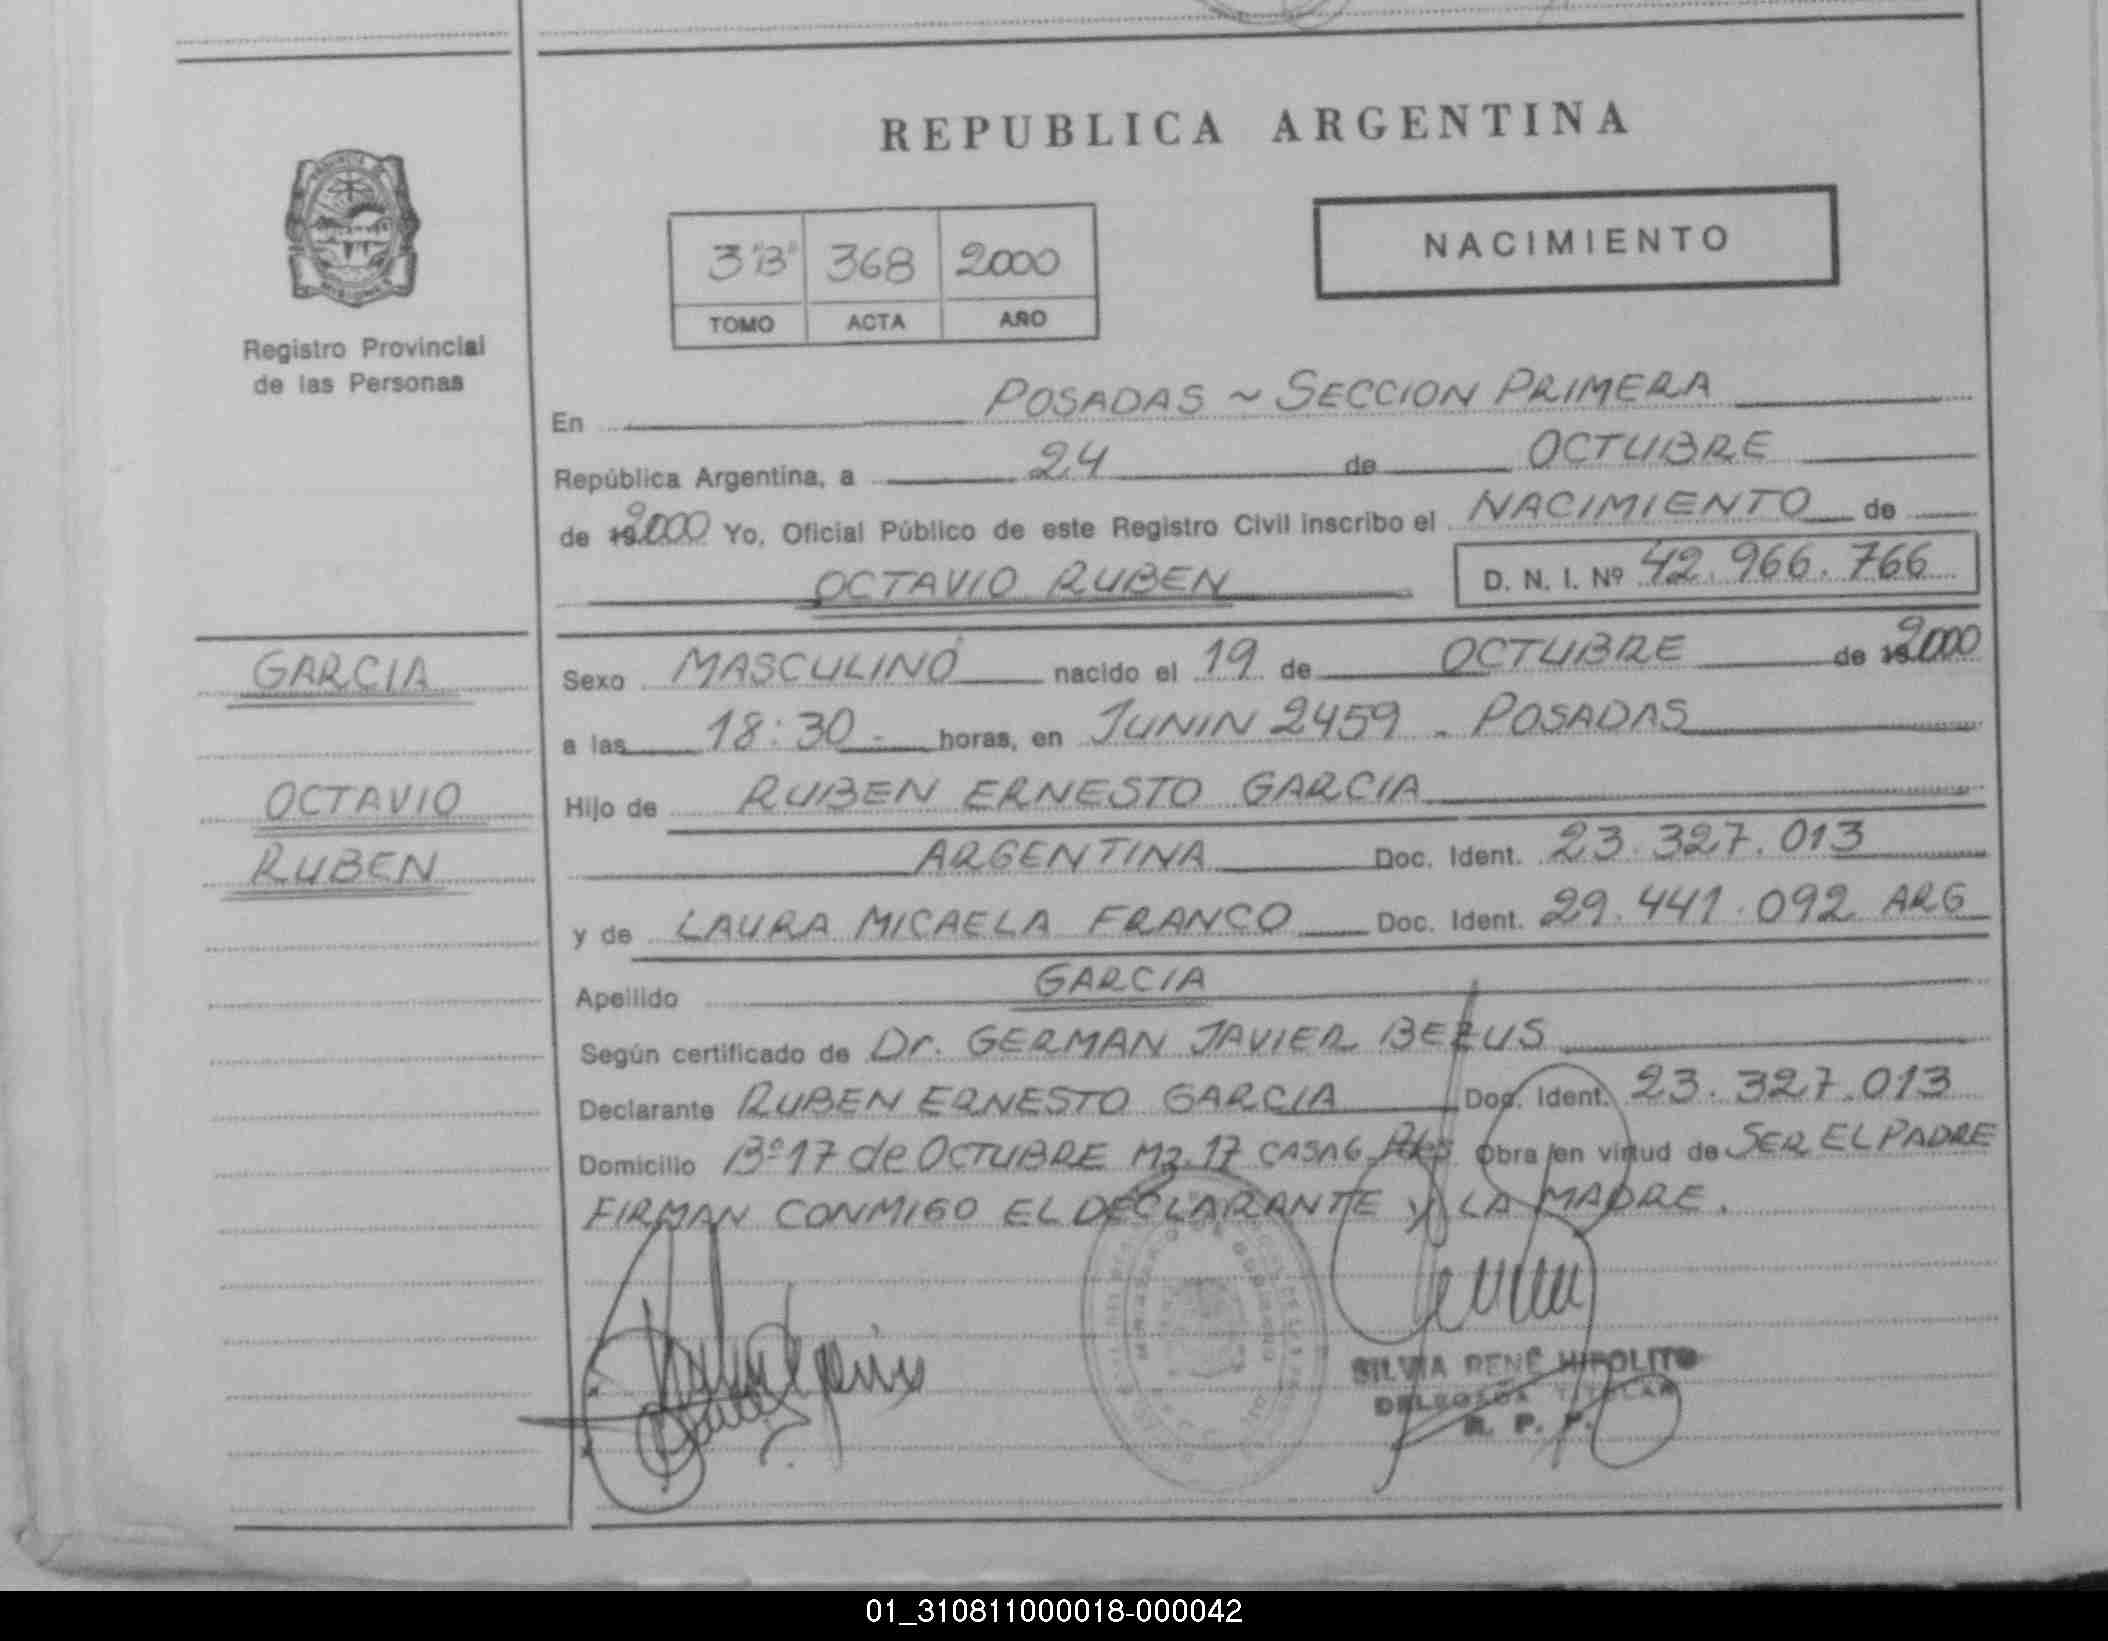 REPUBLICA ARGENTINA
NACIMIENTO
3"B" 368 2000
TOMO ACTA AÑO
Registro Provincial
de las Personas
En POSADAS ~ SECCION PRIMERA
República Argentina, a 24 de OCTUBRE
de 2000 Yo, Oficial Público de este Registro Civil inscribo el NACIMIENTO de
OCTAVIO RUBEN D. N. I. Nº 42.966.766
GARCIA
OCTAVIO
RUBEN
Sexo MASCULINO nacido el 19 de OCTUBRE de 2000
a las 18:30 - horas, en JUNIN 2459 - POSADAS
Hijo de RUBEN ERNESTO GARCIA
ARGENTINA Doc. Ident. 23.327.013
y de LAURA MICAELA FRANCO Doc. Ident. 29.441.092 ARG
Apellido GARCIA
Según certificado de Dr. GERMAN JAVIER BEZUS
Declarante RUBEN ERNESTO GARCIA Doc. Ident. 23.327.013
Domicilio Bº 17 de OCTUBRE Mz. 17 CASA 6 Obra en virtud de SER EL PADRE
FIRMAN CONMIGO EL DECLARANTE Y LA MADRE.
SILVIA RENÉ HIPOLITO
DELEGADA TITULAR
R. P. P.
01_310811000018-000042